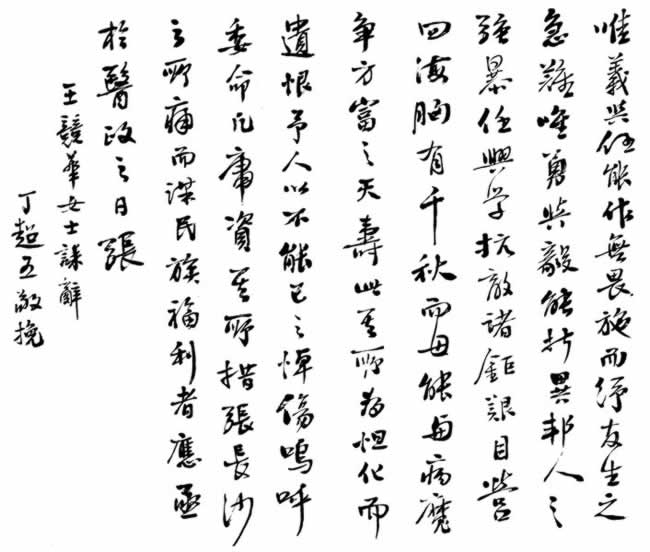 唯義與任能作無畏施而紓友生之
急難唯勇與毅能折異邦人之
強暴任興學抗敵諸鉅艱目營
四海胸有千秋而毋能与病魔
争方富之天壽此其所為怛化而
遺恨予人以不能已之悼傷嗚呼
委命凡庸資其所措張長沙
之所痛而謀民族福利者應亟
於醫政之日張
王競華女士誄辭
丁超五敬挽